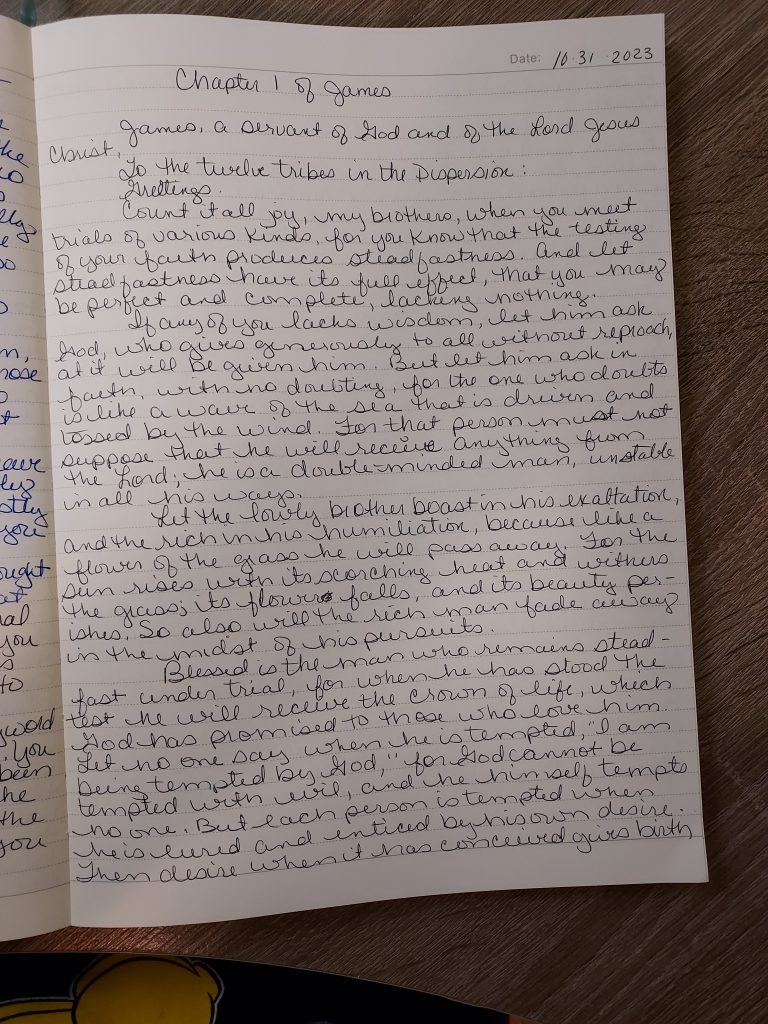 Date: 10 · 31 · 2023
Chapter 1 of James
James, a servant of God and of the Lord Jesus
Christ,
To the twelve tribes in the Dispersion:
Greetings.
Count it all joy, my brothers, when you meet
trials of various kinds, for you know that the testing
of your faith produces steadfastness. And let
steadfastness have its full effect, that you may
be perfect and complete, lacking nothing.
If any of you lacks wisdom, let him ask
God, who gives generously to all without reproach,
at it will be given him. But let him ask in
faith, with no doubting, for the one who doubts
is like a wave of the sea that is driven and
tossed by the wind. For that person must not
suppose that he will receive anything from
the Lord; he is a double-minded man, unstable
in all his ways.
Let the lowly brother boast in his exaltation,
and the rich in his humiliation, because like a
flower of the grass he will pass away. For the
sun rises with its scorching heat and withers
the grass; its flower falls, and its beauty per-
ishes. So also will the rich man fade away
in the midst of his pursuits.
Blessed is the man who remains stead-
fast under trial, for when he has stood the
test he will receive the crown of life, which
God has promised to those who love him.
Let no one say when he is tempted, "I am
being tempted by God," for God cannot be
tempted with evil, and he himself tempts
no one. But each person is tempted when
he is lured and enticed by his own desire.
Then desire when it has conceived gives birth
the
you
ought
you
to
you
been
he
the
you